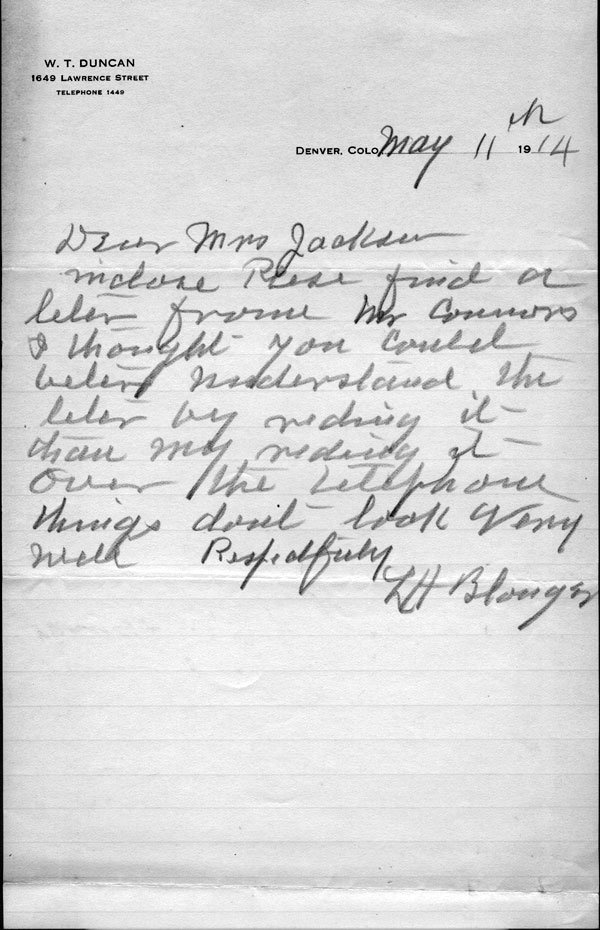 W. T. DUNCAN
1649 LAWRENCE STREET
TELEPHONE 1449
DENVER, COLO May 11th 1914
Dear Mrs Jackson
inclose Plese find a
leter frome Mr Connors
I thought you could
beter understand the
leter by reding it
than my reding it
Over the telephone
things dont look Very
well Respectfuly
LH Blonger